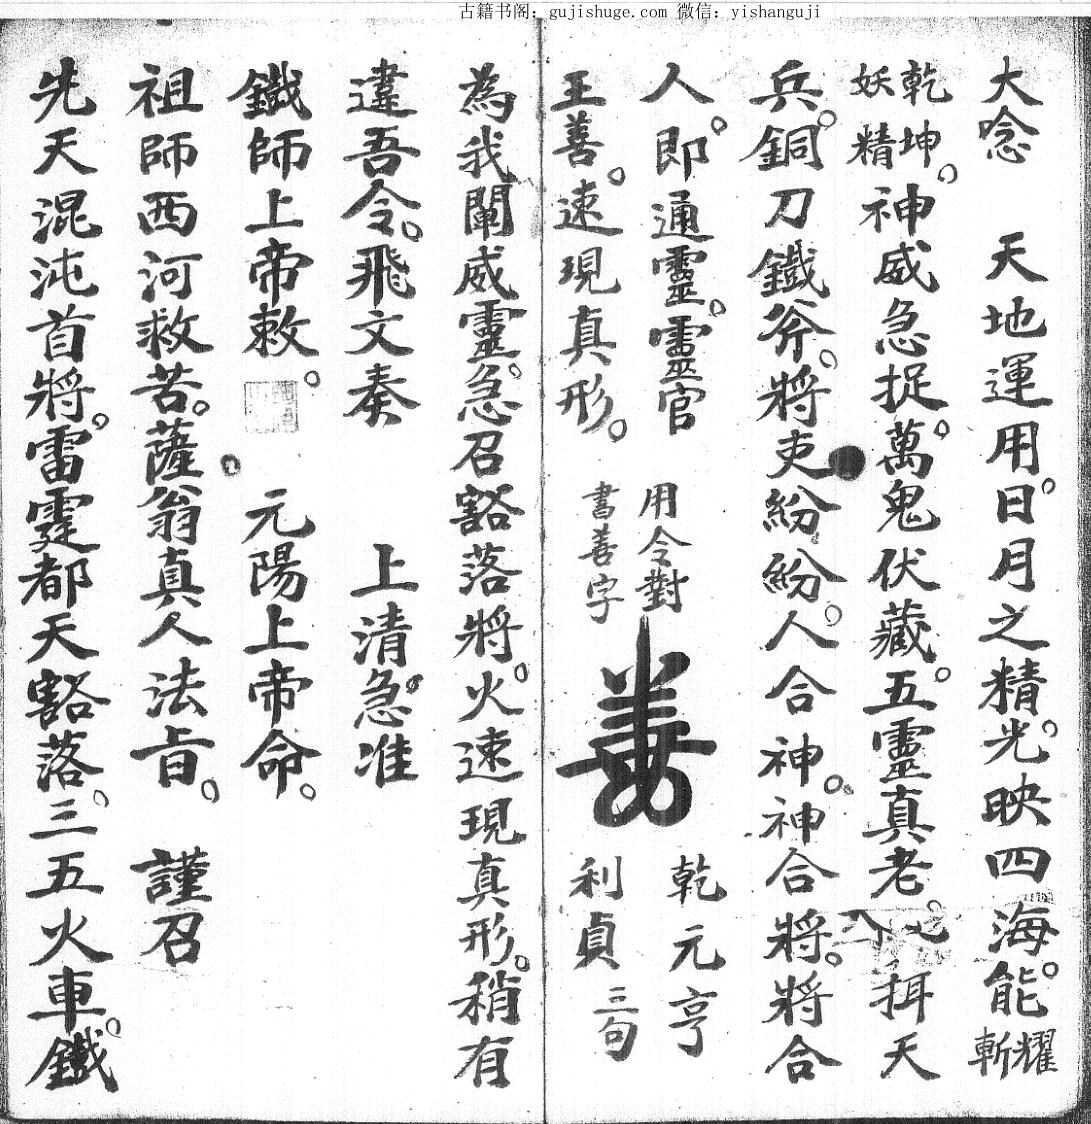 古籍书阁：gujishuge.com 微信：yishanguji
大唸　天地運用。日月之精。光映四海。能耀斬
乾坤。妖精神威急捉。萬鬼伏藏。五靈真老。　揖天
兵。銅刀鐵斧。將吏紛紛。人合神。神合將。將合
人。即通靈。靈官
王善。速現真形。
用令對
書善字
善
乾元亨
利貞
三句
為我闡威靈。急召豁落將。火速現真形。稍有
違吾令。飛文奏　上清急准
鐵師上帝敕。　元陽上帝命。
祖師西河救苦。薩翁真人法旨。　謹召
先天混沌首將。雷霆都天豁落。三五火車。鐵